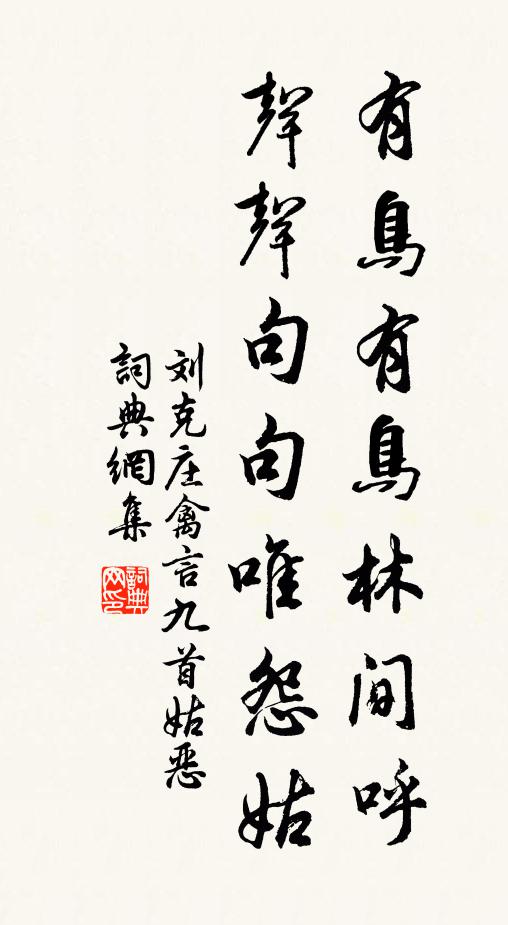 有鳥有鳥林間呼
聲聲句句唯怨姑
刘克庄禽言九首姑恶
詞典網集
詞典
网印